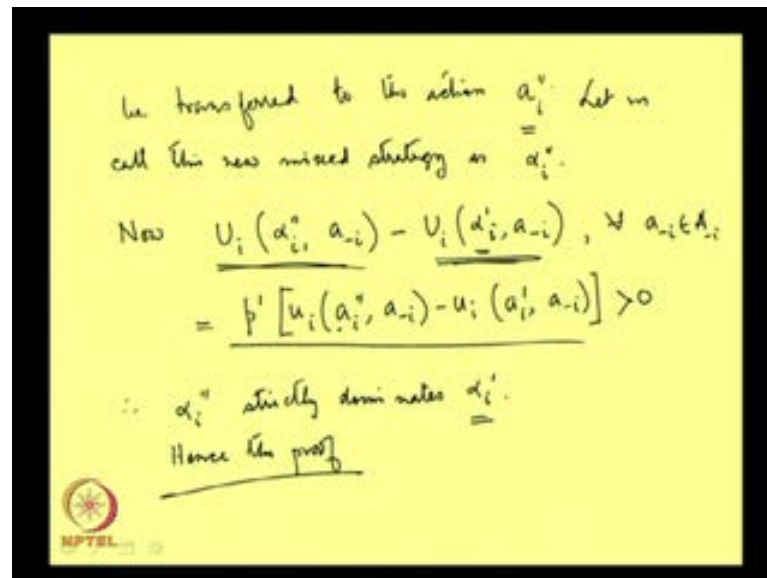 be transferred to the action aᵢ''. Let us
call this new mixed strategy as αᵢ''.
Now Uᵢ(αᵢ'', a₋ᵢ) - Uᵢ(αᵢ', a₋ᵢ), ∀ a₋ᵢ ∈ A₋ᵢ
= p'[uᵢ(aᵢ'', a₋ᵢ) - uᵢ(aᵢ', a₋ᵢ)] > 0
∴ αᵢ'' strictly dominates αᵢ'.
Hence the proof
NPTEL